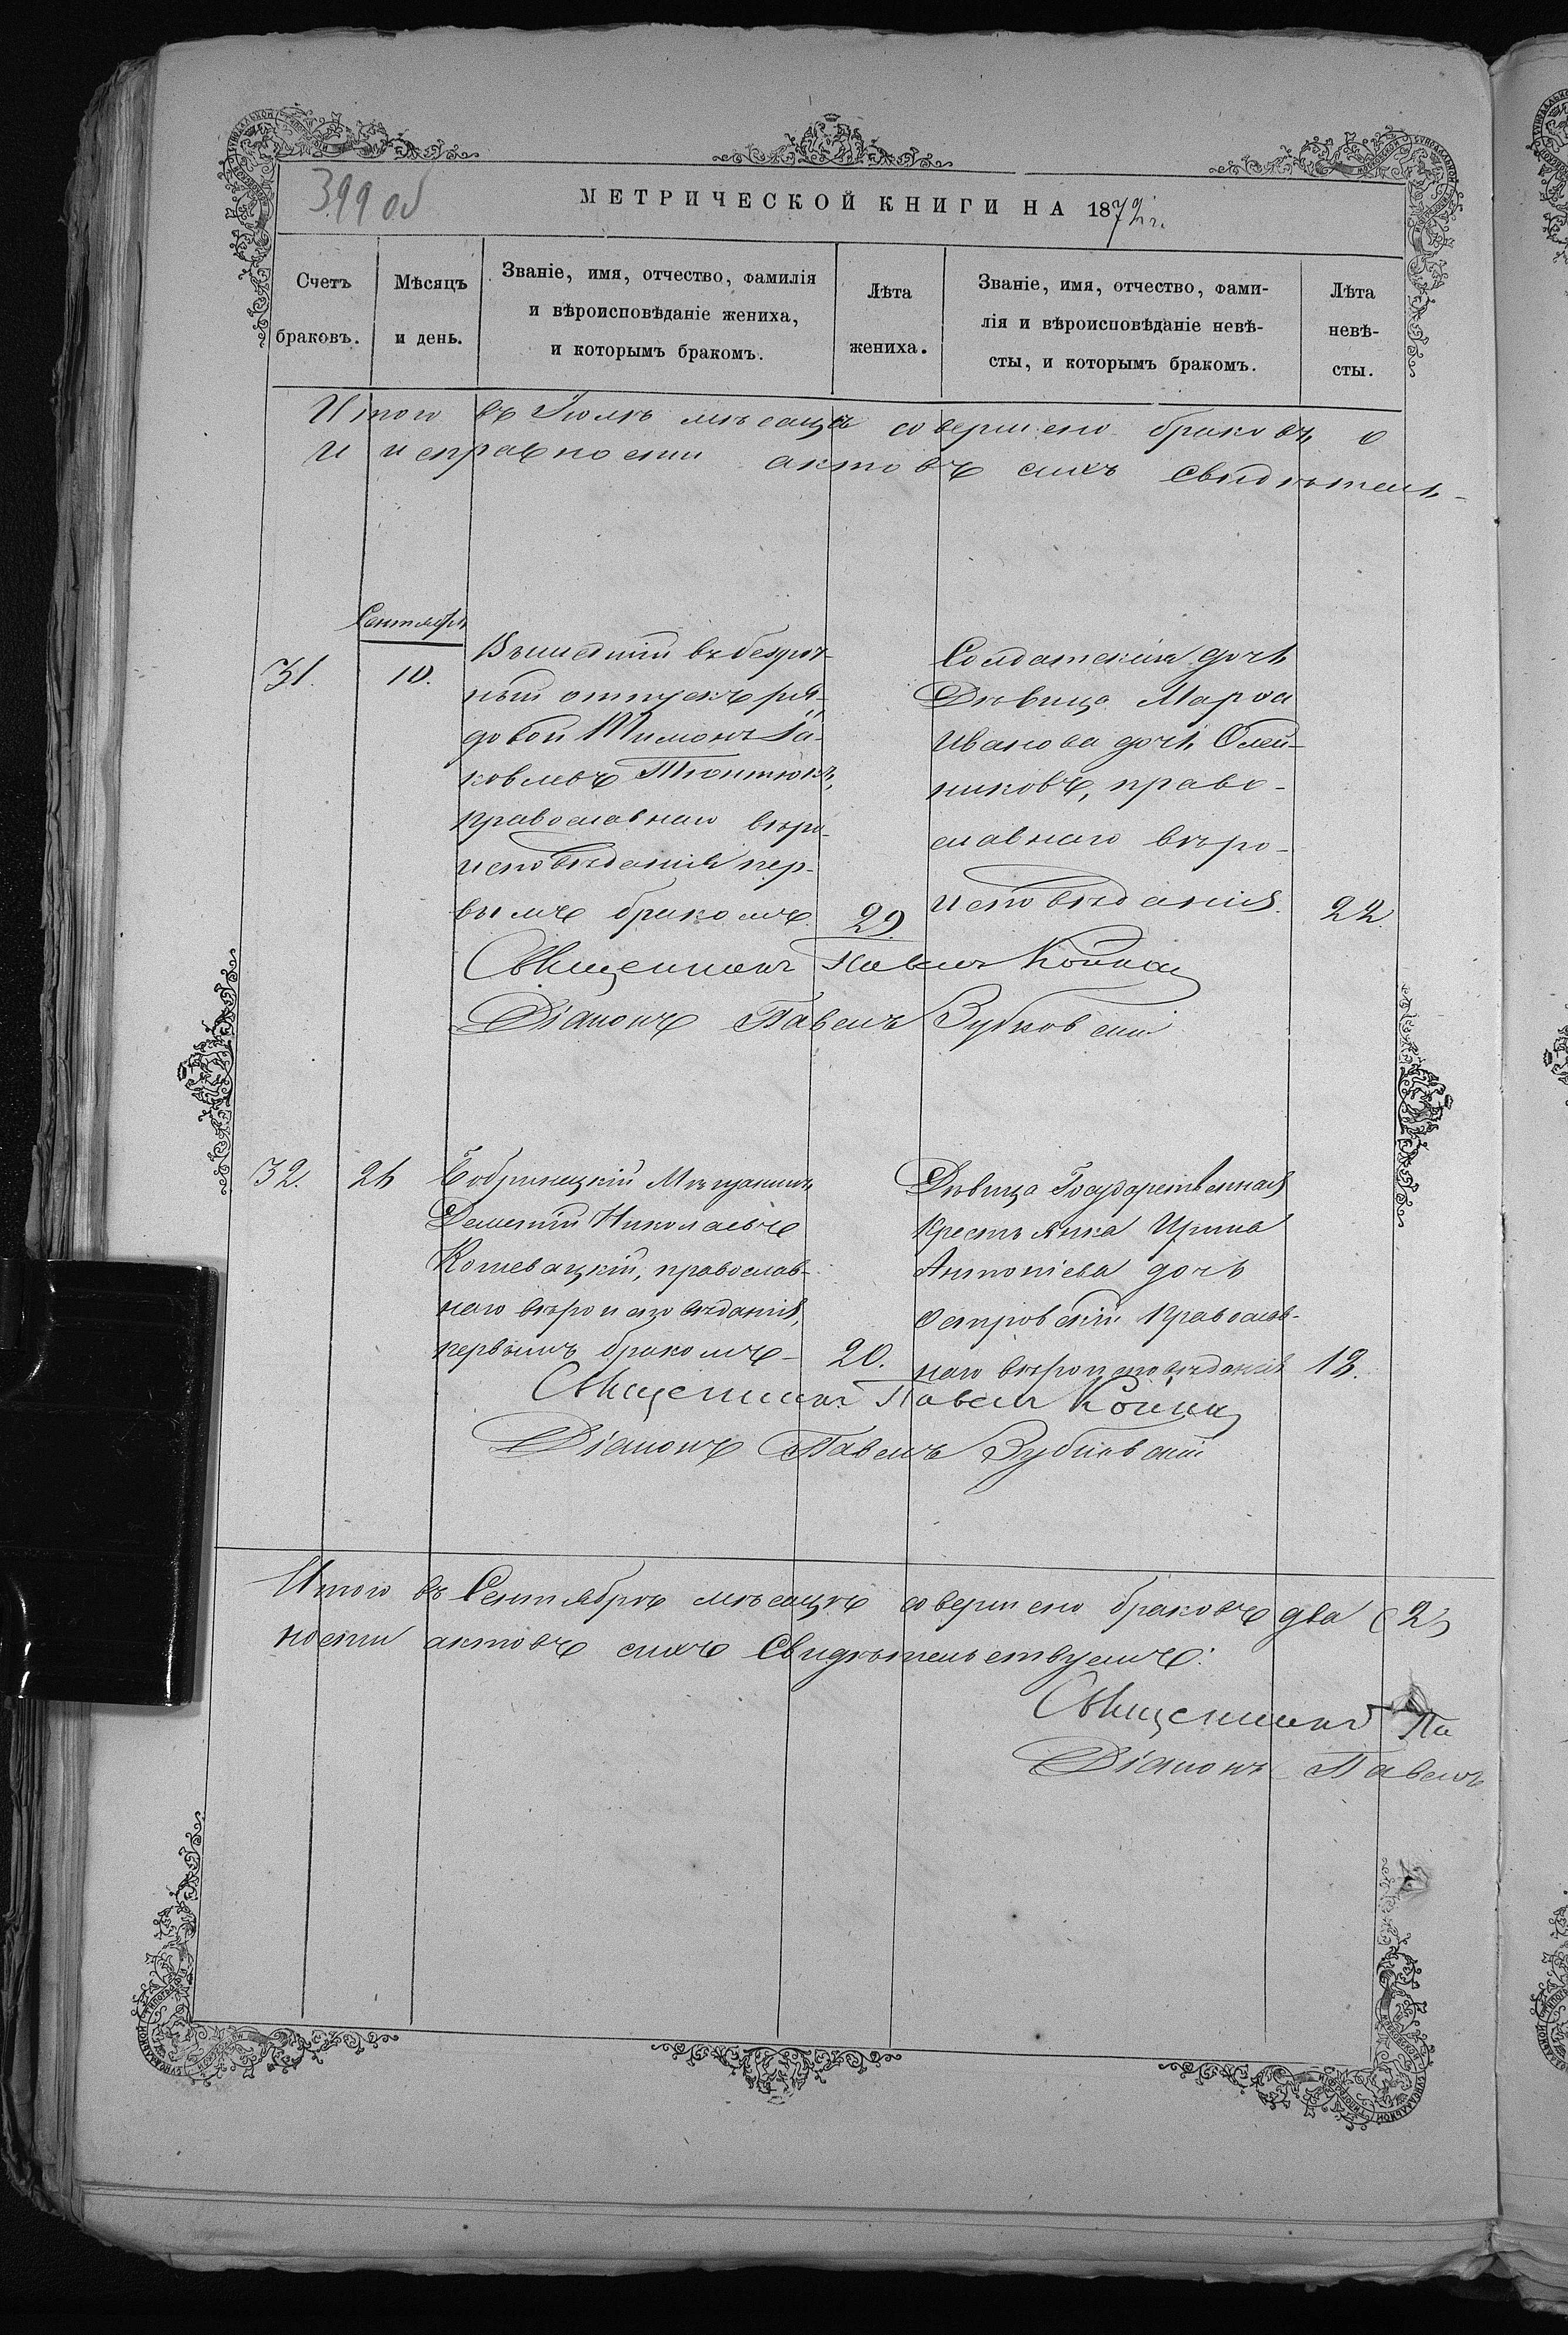 399 об
МЕТРИЧЕСКОЙ КНИГИ НА 1872 г.
Счетъ браковъ.
Мѣсяцъ и день.
Званіе, имя, отчество, фамилія
и вѣроисповѣданіе жениха,
и которымъ бракомъ.
Лѣта
жениха.
Званіе, имя, отчество, фами-
лія и вѣроисповѣданіе невѣ-
сты, и которымъ бракомъ.
Лѣта
невѣ-
сты.
Итого въ Іюлѣ мѣсяцѣ совершено браковъ
И исправности актовъ сихъ свидѣтель-
Сентябрь
31.
10.
Вышедшій въ безсроч-
ный отпускъ ря-
довой Тимонъ Іа-
ковлевъ
православнаго вѣро-
исповѣданія пер-
вымъ бракомъ.
29.
Солдатская дочь
Дѣвица Марѳа
Иванова дочь Олей-
никовъ, право-
славнаго вѣро-
исповѣданія.
22.
Священникъ Павелъ
Діаконъ Павелъ Зубковскій
32.
26
Бобринецкій Мѣщанинъ
Николаевъ
православ-
наго вѣроисповѣданія,
первымъ бракомъ
20.
Дѣвица Государственная
крестьянка Ирина
Антоніева дочь
Островскій православ-
наго вѣроисповѣданія
18.
Священникъ Павелъ
Діаконъ Павелъ Зубковскій
Итого въ Сентябрѣ мѣсяцѣ совершено браковъ два (2)
ности актовъ сихъ свидѣтельствуемъ:
Священникъ Па
Діаконъ Павелъ